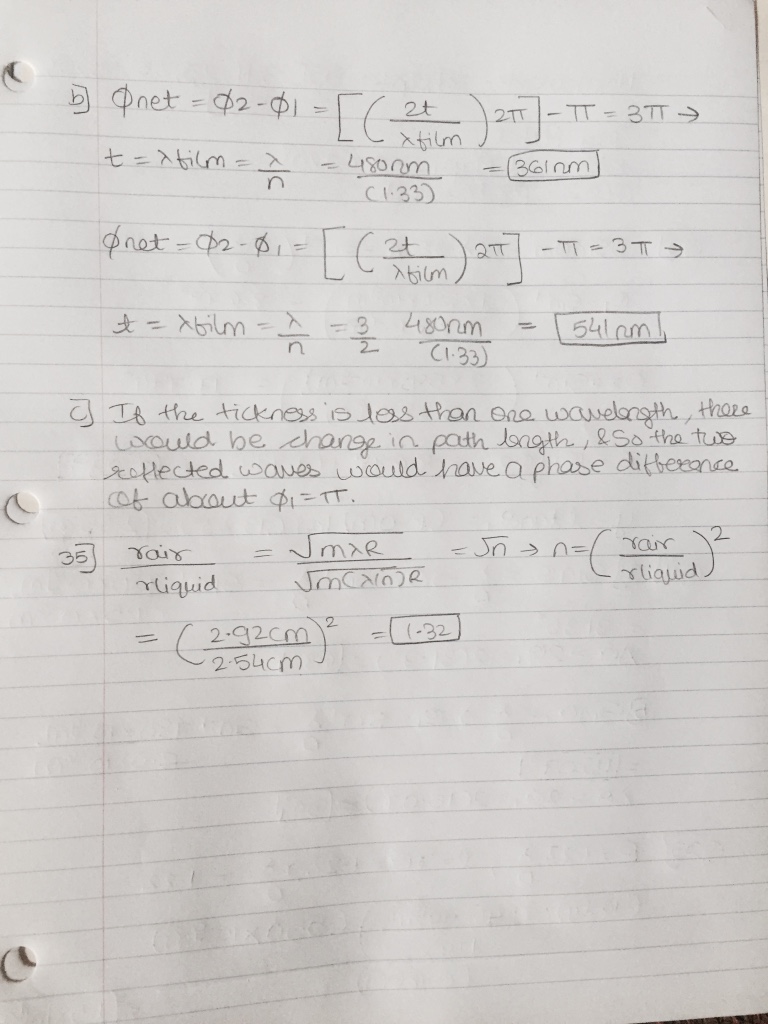 b] Φnet = Φ2 - Φ1 = [(2t/λfilm)2π] - π = 3π →
t = λfilm = λ/n = 480nm/(1.33) = 361nm
Φnet = Φ2 - Φ1 = [(2t/λfilm)2π] - π = 3π →
t = λfilm = λ/n = 3/2 480nm/(1.33) = 541nm
c] If the tickness is less than one wavelength, there
would be change in path length, & So the two
reflected waves would have a phase difference
of about Φ1 = π.
35] rair/rliquid = √mλR/√m(λ/n)R = √n → n = (rair/rliquid)²
= (2.92cm/2.54cm)² = 1.32